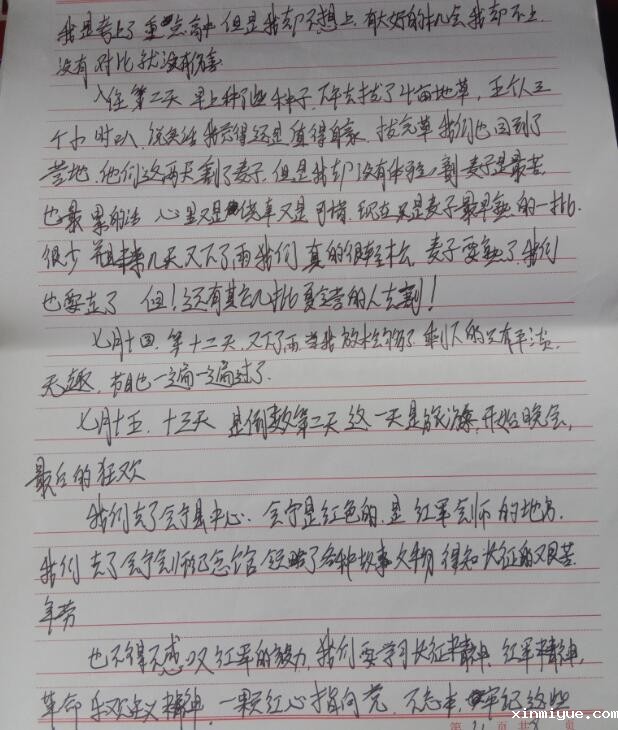 我是考上了重点高中但是我却不想上,有大好的机会我却不上
没有对比就没有伤害
入住第二天 早上种了些种子,下午去拔了4亩地草,五个人三
个小时以,说实话我觉得还是值得自豪,拔完草我们也回到了
营地.他们这两天割了麦子,但是我却没有体验,割麦子是最苦
也最累的活 心里又是侥幸又是可惜.现在只是麦子最早熟的一批
很少 而且未来几天又下了雨我们真的很轻松,麦子要熟了我们
也要走了 但!还有其它几批夏令营的人去割!
七月十四.第十二天 又下了雨,当我放松够了 剩下的只有平淡
无趣,节目也一遍一遍过了.
七月十五.十三天 是倒数第二天 这一天是 开始晚会,
最后的狂欢
我们去了会宁县中心.会宁是红色的,是红军会师的地方.
我们去了会宁会师纪念馆 领略了各种故事文物 得知长征的艰苦
年劳
也不得不感叹红军的毅力,我们要学习长征精神、红军精神,
革命乐观主义精神,一颗红心指向党,不忘本,牢记这些
第 页 共 页
xinmiyue.com